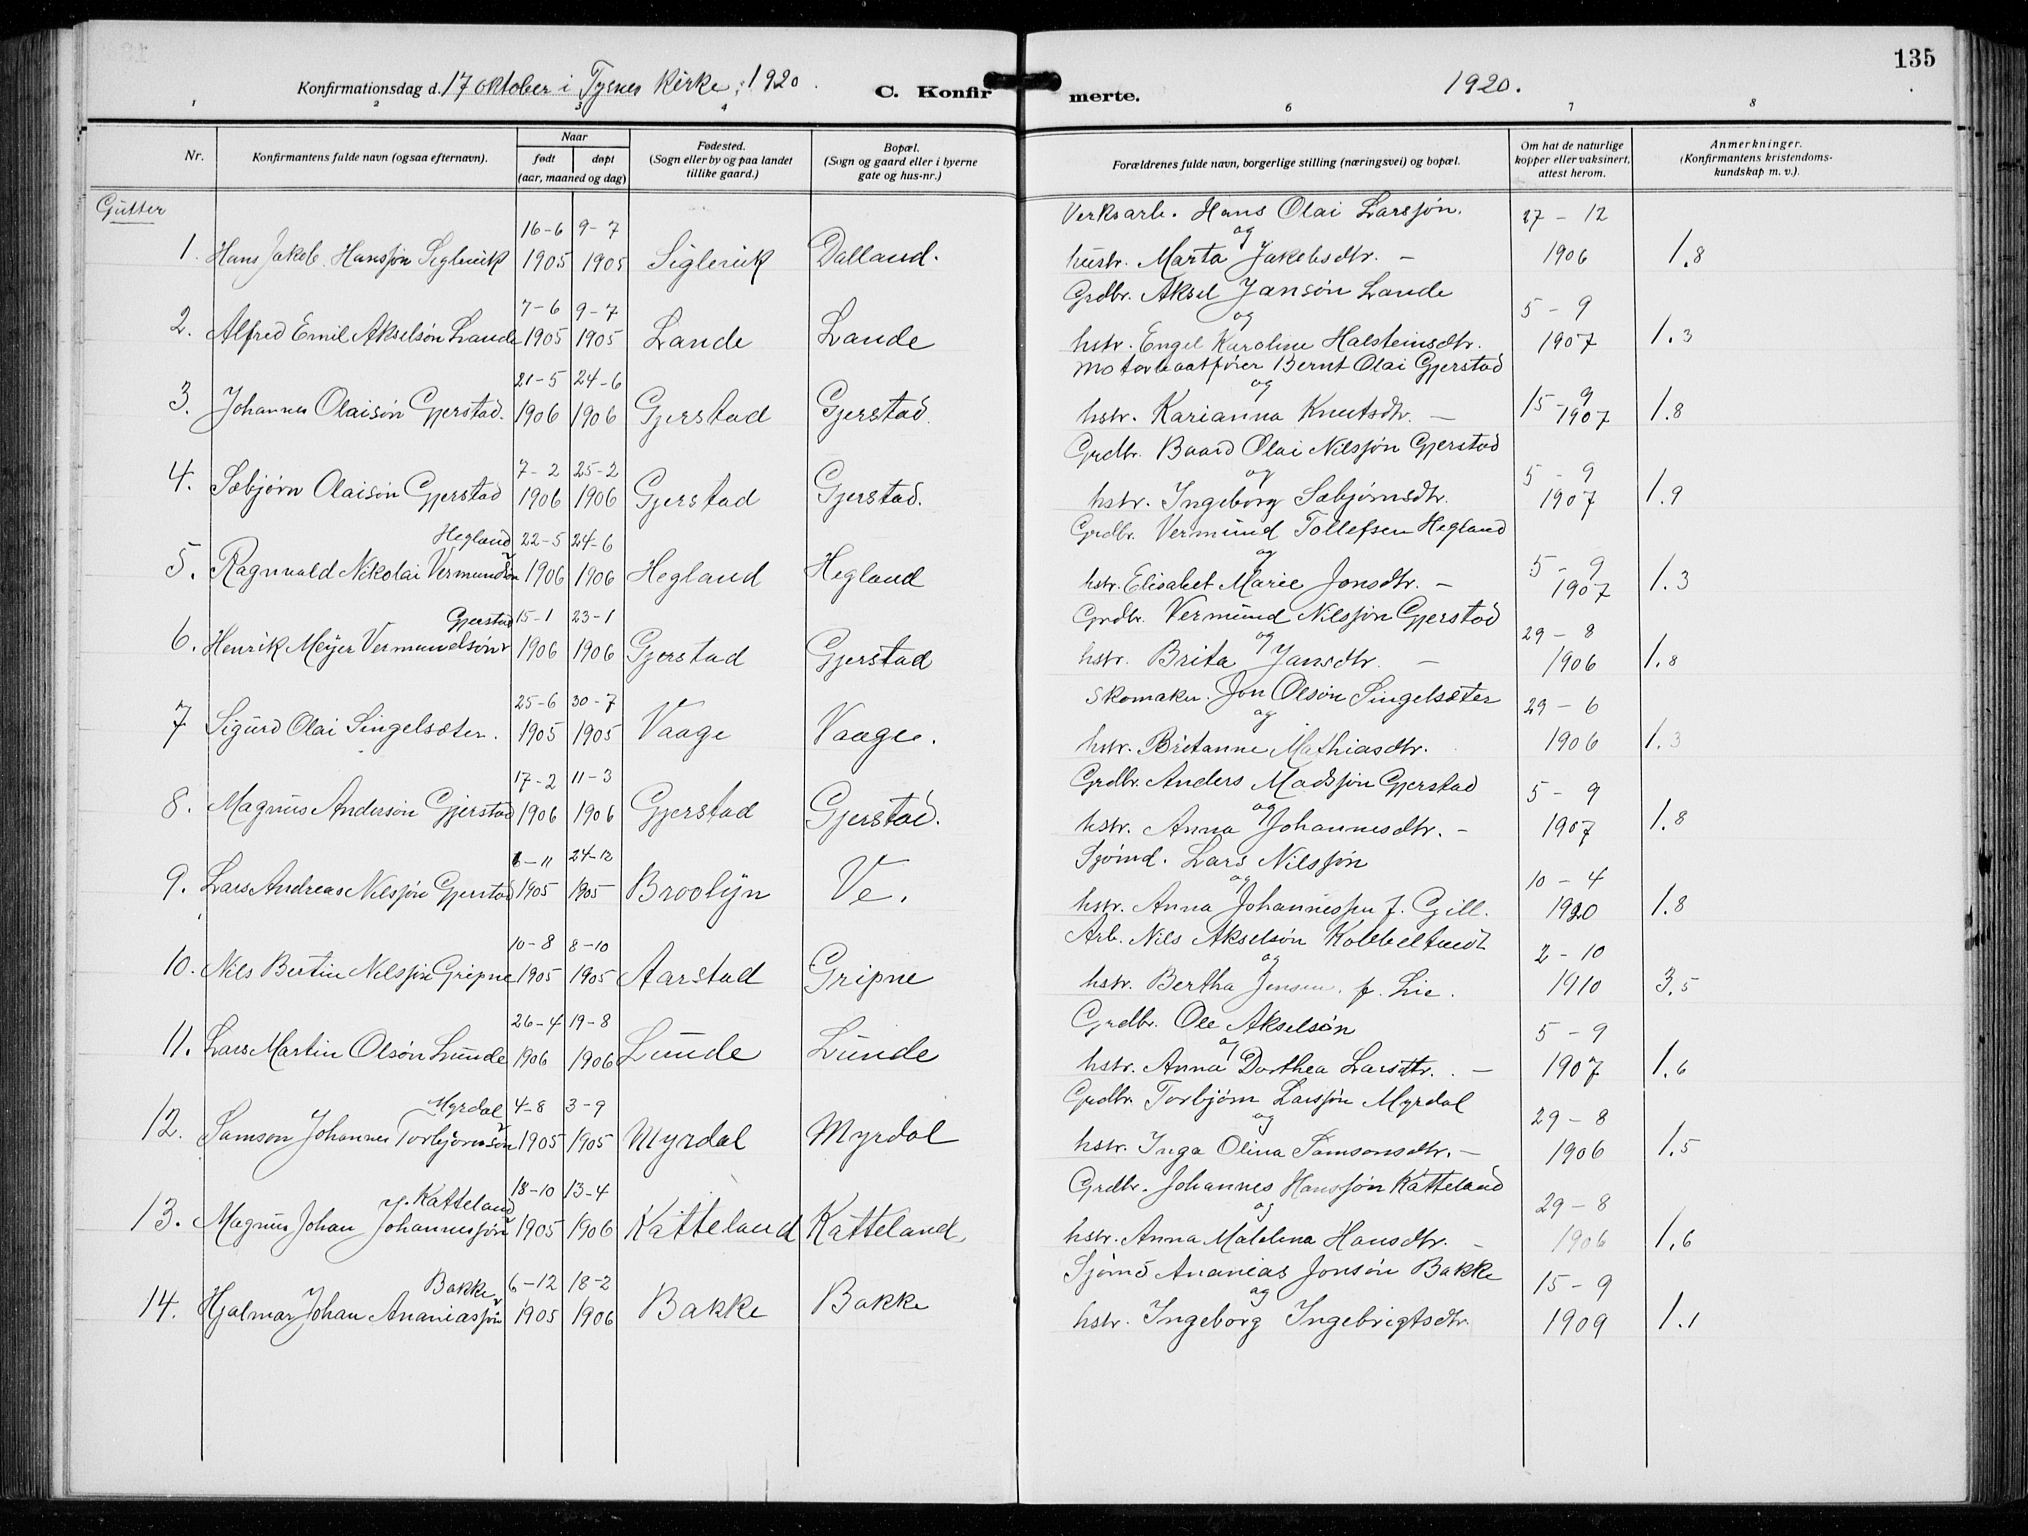 135
Konfirmationsdag d. 17 oktober i Tysnes Kirke, 1920. C. Konfirmerte. 1920.
1 2 3 4 6 7 8
Nr. Konfirmantens fulde navn (ogsaa efternavn). Naar født døpt (aar, maaned og dag) Fødested. (Sogn eller by og paa landet tillike gaard.) Bopæl. (Sogn og gaard eller i byerne gate og hus-nr.) Forældrenes fulde navn, borgerlige stilling (næringsvei) og bopæl. Om hat de naturlige kopper eller vaksinert, attest herom. Anmerkninger. (Konfirmantens kristendoms-kundskap m. v.).
Gutter
16-6 9-7 Verksarb. Hans Olai Larssøn. 27-12
1. Hans Jakob Hanssøn Siglevik 1905 1905 Siglevik Dalland. og hustr. Marta Jakobsdtr. — 1906 1.8
7-6 9-7 Grdbr. Aksel Jansøn Lande 5-9
2. Alfred Emil Akselsøn Lande 1905 1905 Lande Lande og hstr. Engel Karoline Halsteinsdtr. 1907 1.3
21-5 24-6 Motorbaatfører Bernt Olai Gjerstad
3. Johannes Olaisøn Gjerstad. 1906 1906 Gjerstad Gjerstad. og hstr. Karianna Knutsdtr. — 15-9 1907 1.8
7-2 25-2 Grdbr. Baard Olai Nilssøn Gjerstad 5-9
4. Sæbjørn Olaisøn Gjerstad 1906 1906 Gjerstad Gjerstad. og hstr. Ingeborg Sæbjørnsdtr. 1907 1.9
Hegland 22-5 24-6 Grdbr. Vermund Tollefsen Hegland
5. Ragnvald Nikolai Vermundsøn 1906 1906 Hegland Hegland og hstr. Elisabet Marie Jonsdtr. — 5-9 1907 1.3
Gjerstad 15-1 23-1 Grdbr. Vermund Nilssøn Gjerstad 29-8
6. Henrik Meyer Vermundsøn 1906 1906 Gjerstad Gjerstad og hstr. Brita Jansdtr. — 1906 1.8
25-6 30-7 Skomaker Jon Olsøn Singelsæter 29-6
7 Sigurd Olai Singelsæter. 1905 1905 Vaage Vaage. og hstr. Britanne Mathiasdtr. 1906 1.3
17-2 11-3 Grdbr. Anders Madssøn Gjerstad 5-9
8. Magnus Andersøn Gjerstad 1906 1906 Gjerstad Gjerstad. og hstr. Anna Johannesdtr. — 1907 1.8
6-11 24-12 Sjømd. Lars Nilssøn 10-4
9. Lars Andreas Nilssøn Gjerstad 1905 1905 Broolyn Ve. og hstr. Anna Johannessen f. Gill. 1920 1.8
10-8 8-10 Arb. Nils Akselsøn Kobbeltvedt 2-10
10. Nils Bertin Nilssøn Gripne 1905 1905 Aarstad Gripne og hstr. Bertha Jensen f. Lie. 1910 3.5
26-4 19-8 Grdbr. Ole Akselsøn 5-9
11. Lars Martin Olsøn Lunde 1906 1906 Lunde Lunde og hstr. Anna Dorthea Larsdtr. — 1907 1.6
Myrdal 4-8 3-9 Grdbr. Torbjørn Larssøn Myrdal 29-8
12. Samson Johannes Torbjørnsøn 1905 1905 Myrdal Myrdal og hstr. Inga Olina Samsonsdtr. — 1906 1.5
Katteland 18-10 13-4 Grdbr. Johannes Hanssøn Katteland 29-8
13. Magnus Johan Johannessøn 1905 1906 Katteland Katteland, og hstr. Anna Malena Hansdtr. — 1906 1.6
Bakke 6-12 18-2 Sjømd Ananias Jonsøn Bakke 15-9
14. Hjalmar Johan Ananiassøn 1905 1906 Bakke Bakke og hstr. Ingeborg Ingebrigtsdtr. 1909 1.1